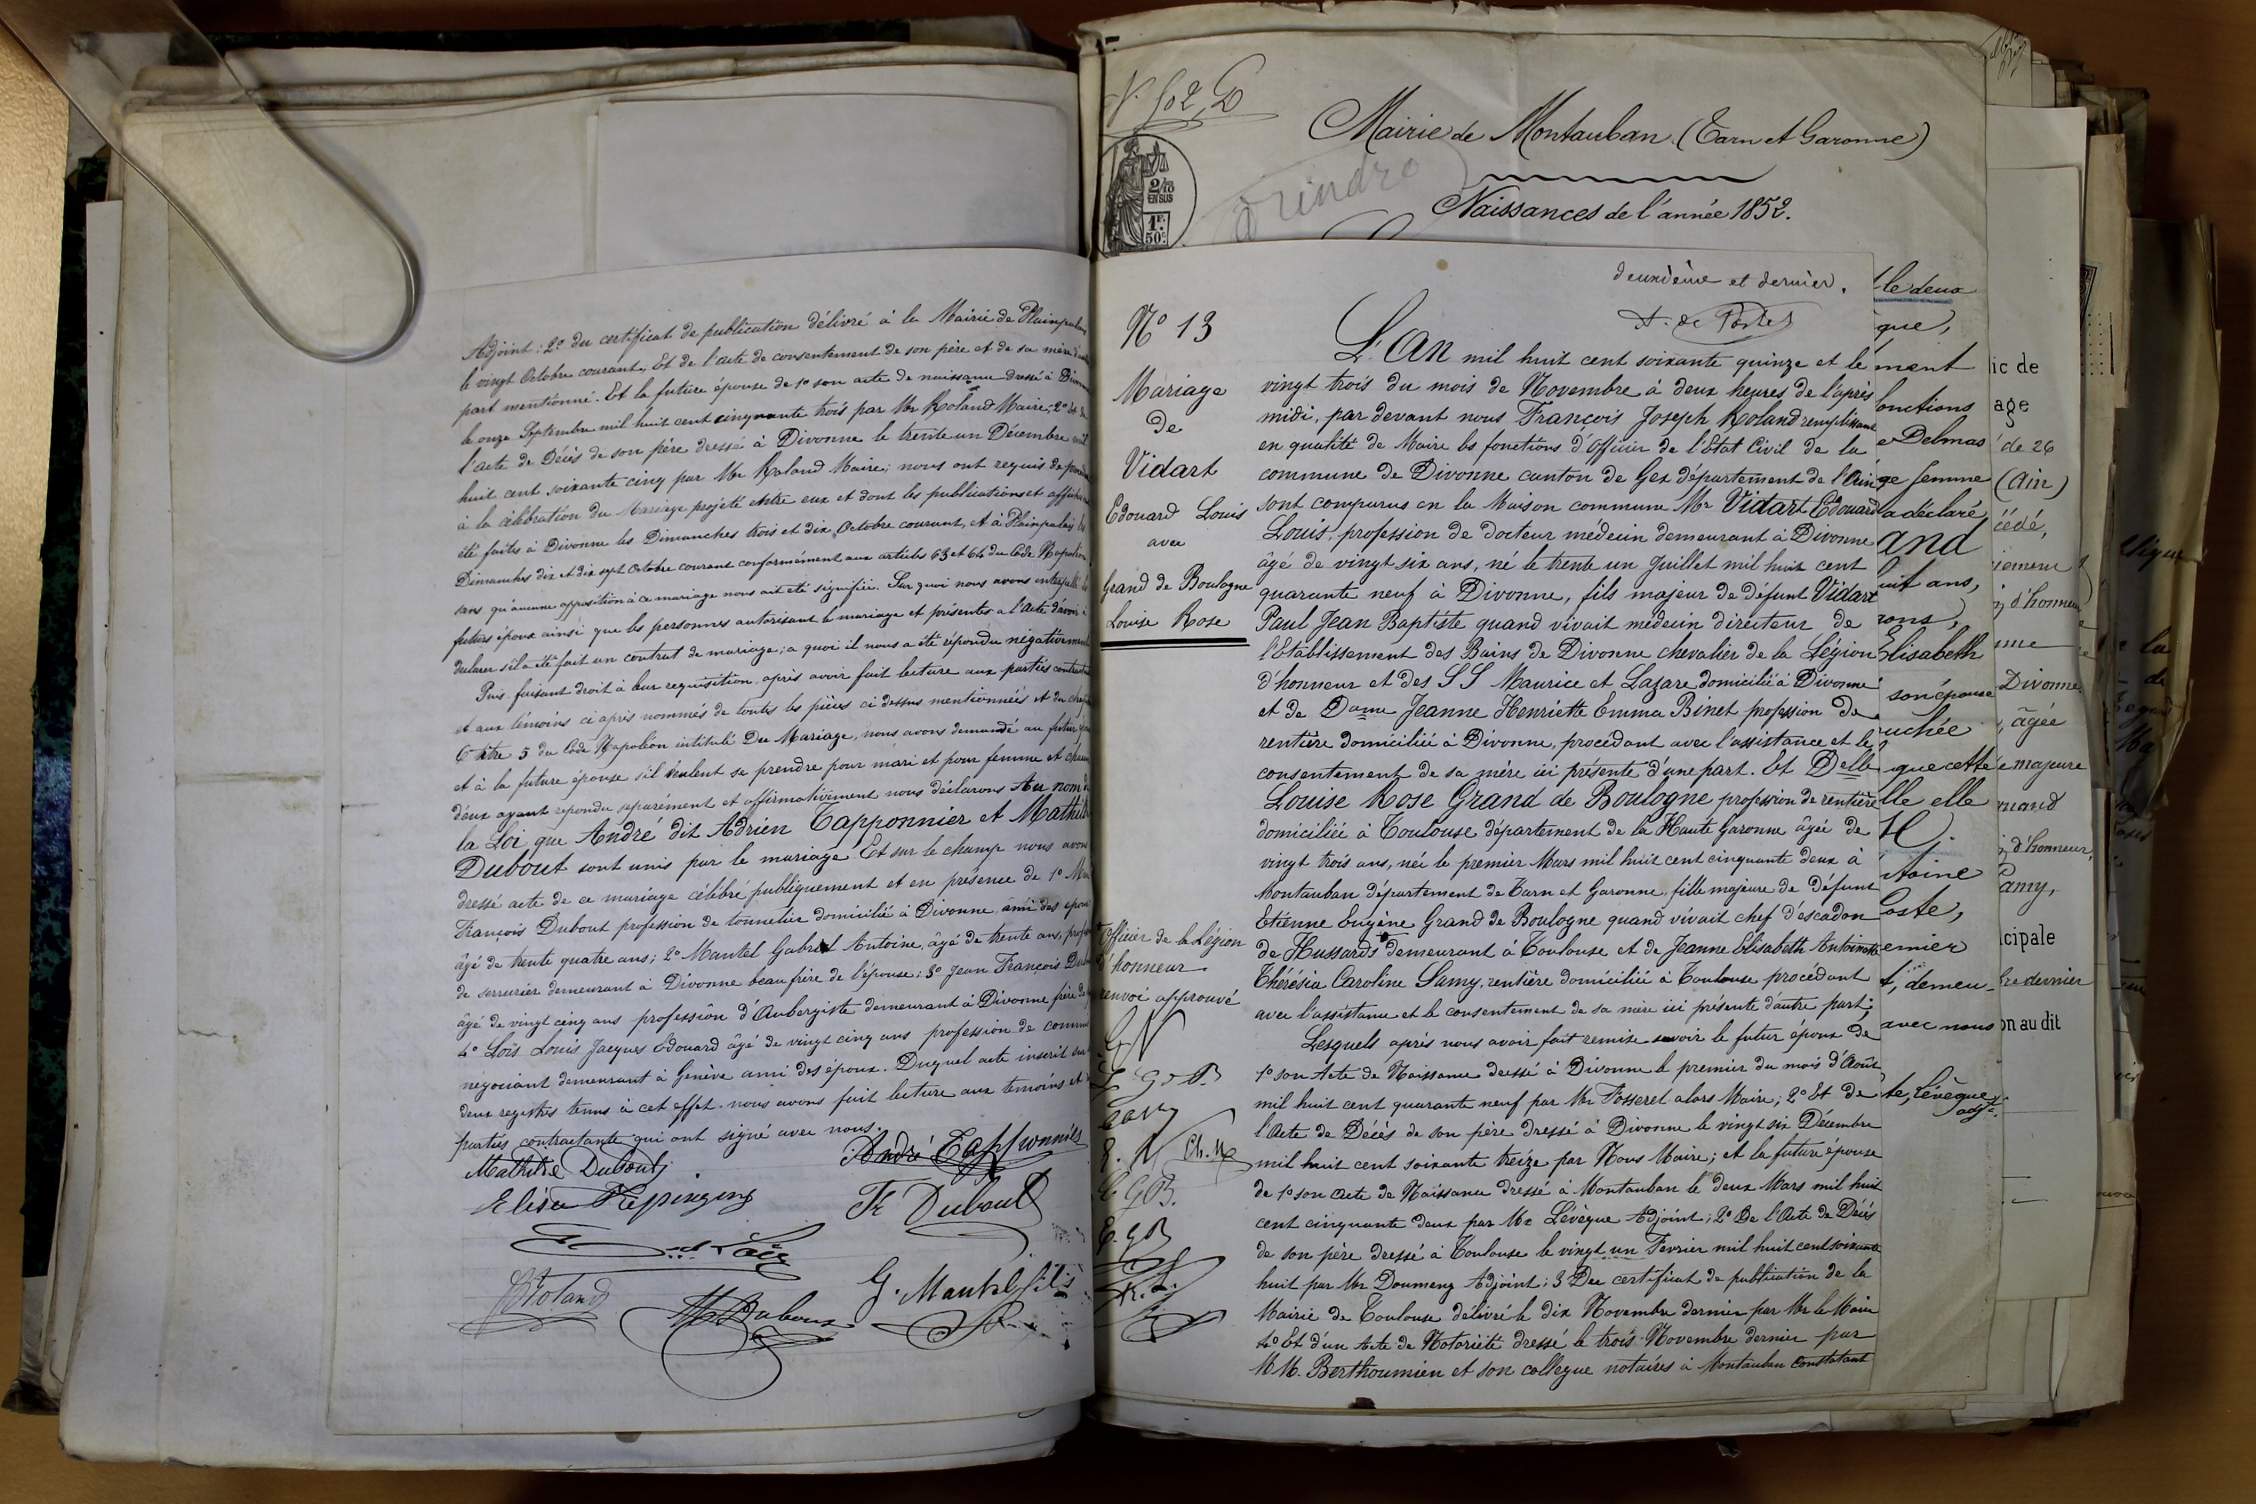 Adjoint: 2º du certificat de publication délivré à la Mairie de Plainpalais
le vingt Octobre courant, Et de l'acte de consentement de son père et de sa mère
part mentionné. Et la future épouse de 1º son acte de naissance dressé à Divonne
le onze Septembre mil huit cent cinquante trois par Mr Roland Maire; 2º Et de
l'acte de Décès de son père dressé à Divonne le trente un Décembre mil
huit cent soixante cinq par Mr Roland Maire; nous ont requis de procéder
à la célébration du Mariage projeté entre eux et dont les publications et affiches
été faites à Divonne les Dimanches trois et dix Octobre courant, et à Plainpalais les
Dimanches dix et dix sept Octobre courant conformément aux articles 63 et 64 du Code Napoléon
sans qu'aucune opposition à ce mariage nous ait été signifiée. Sur quoi nous avons interpellé les
futurs époux ainsi que les personnes autorisant le mariage et présentes à l'acte d'avoir à
declarer s'il a été fait un contrat de mariage; a quoi il nous a été répondu négativement
Puis faisant droit à leur requisition après avoir fait lecture aux parties contractantes
et aux témoins ci après nommés de toutes les pièces ci dessus mentionnées et du chapitre
6 titre 5 du Code Napoléon intitulé Du Mariage, nous avons demandé au futur époux
et à la future épouse s'il veulent se prendre pour mari et pour femme et chacun
d'eux ayant repondu separément et affirmativement nous déclarons Au nom de
la Loi que André dit Adrien Tapponnier et Mathilde
Dubout sont unis par le mariage Et sur le champ nous avons
dressé acte de ce mariage célébré publiquement et en présence de 1º
François Dubout profession de tonnelier domicilié à Divonne ami des époux
âgé de trente quatre ans; 2º Mantel Gabriel Antoine, âgé de trente ans, profession
de serrurier demeurant à Divonne beau frère de l'épouse; 3º Jean François Dubout
âgé de vingt cinq ans profession d'Aubergiste demeurant à Divonne frère de
4º Loïs Louis Jacques Edouard âgé de vingt cinq ans profession de commis
negociant demeurant à Genève ami des époux. Duquel acte inscrit sur
deux registres tenus à cet effet nous avons fait lecture aux temoins et
parties contractante qui ont signé avec nous.
Mathilde Dubout André Tapponnier
Elisée Fr Dubout
Ed Loïs
Roland M Dubout G. Mantel fils
Nº 502
Mairie de Montauban (Tarn et Garonne)
2/10
EN SUS
1F.
50C.
Naissances de l'année 1852.
deuxième et dernier.
Nº 13
Mariage
de
Vidart
Edouard Louis
avec
Grand de Boulogne
Louise Rose
L'An mil huit cent soixante quinze et le
vingt trois du mois de Novembre à deux heures de l'après
midi, par devant nous François Joseph Roland remplissant
en qualité de Maire les fonctions d'Officier de l'Etat Civil de la
commune de Divonne canton de Gex département de l'Ain
sont comparus en la Maison commune Mr Vidart Edouard
Louis, profession de docteur médecin demeurant à Divonne
âgé de vingt six ans, né le trente un Juillet mil huit cent
quarante neuf à Divonne, fils majeur de défunt Vidart
Paul Jean Baptiste quand vivait médecin directeur de
l'Etablissement des Bains de Divonne chevalier de la Légion
d'honneur et des S S Maurice et Lazare domicilié à Divonne
et de Dame Jeanne Henriette Emma Binet profession de
rentière domiciliée à Divonne, procédant avec l'assistance et le
consentement de sa mère ici présente d'une part. Et Delle
Louise Rose Grand de Boulogne profession de rentière
domiciliée à Toulouse département de la Haute Garonne âgée de
vingt trois ans, née le premier Mars mil huit cent cinquante deux à
Montauban département de Tarn et Garonne, fille majeure de défunt
Etienne Eugène Grand de Boulogne quand vivait chef d'escadron
de Hussards demeurant à Toulouse et de Jeanne Elisabeth Antoinette
Thérésia Caroline Lamy, rentière domiciliée à Toulouse procédant
avec l'assistance et le consentement de sa mère ici présente d'autre part;
Lesquels après nous avoir fait remise savoir le futur époux de
1º son Acte de Naissance dressé à Divonne le premier du mois d'Août
mil huit cent quarante neuf par Mr Fosseret alors Maire; 2º Et de
l'Acte de Décès de son père dressé à Divonne le vingt six Décembre
mil huit cent soixante treize par Nous Maire; et la future épouse
de 1º son Acte de Naissance dressé à Montauban le deux Mars mil huit
cent cinquante deux par Mr Lévêque Adjoint; 2º De l'Acte de Décès
de son père dressé à Toulouse le vingt un Fevrier mil huit cent soixante
huit par Mr Doumeng Adjoint; 3 Du certificat de publication de la
Mairie de Toulouse délivré le dix Novembre dernier par Mr le Maire
4º Et d'un Acte de Notoriété dressé le trois Novembre dernier par
M M. Berthoumieu et son collègue notaires à Montauban constatant
Officier de la Légion
d'honneur
renvoi approuvé
Ch. M
E. G B
le deux
que,
ment
fonctions
Delmas
femme
a déclaré
and
huit ans,
Elisabeth
son épouse
que cette
lle elle
toine
Coste,
demeu-
avec nous
Lévêque,
adjt.
ic de
age
de 26
(Ain)
cédé,
d'honneur
Divonne
, âgée
majeure
d'honneur,
Lamy,
icipale
dernier
on au dit